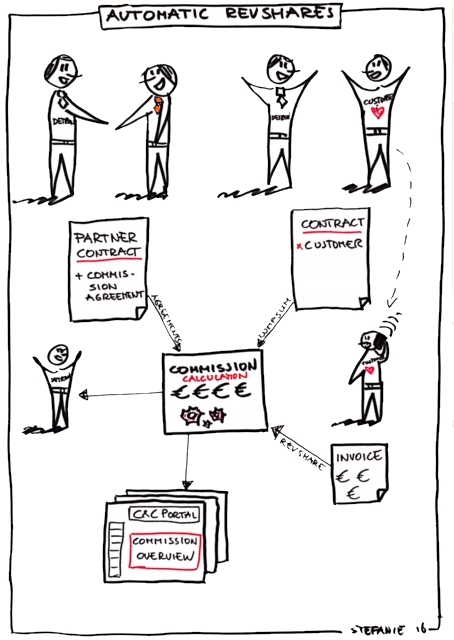 AUTOMATIC REVSHARES
CUSTOMER
PARTNER
CONTRACT
+ COMMIS-
SION
AGREEMENT
CONTRACT
x CUSTOMER
AGREEMENTS
LUMPSUM
COMMISSION
CALCULATION
€ € € €
REVSHARE
INVOICE
€ €
€
C&C PORTAL
COMMISSION
OVERVIEW
STEFANIE 16